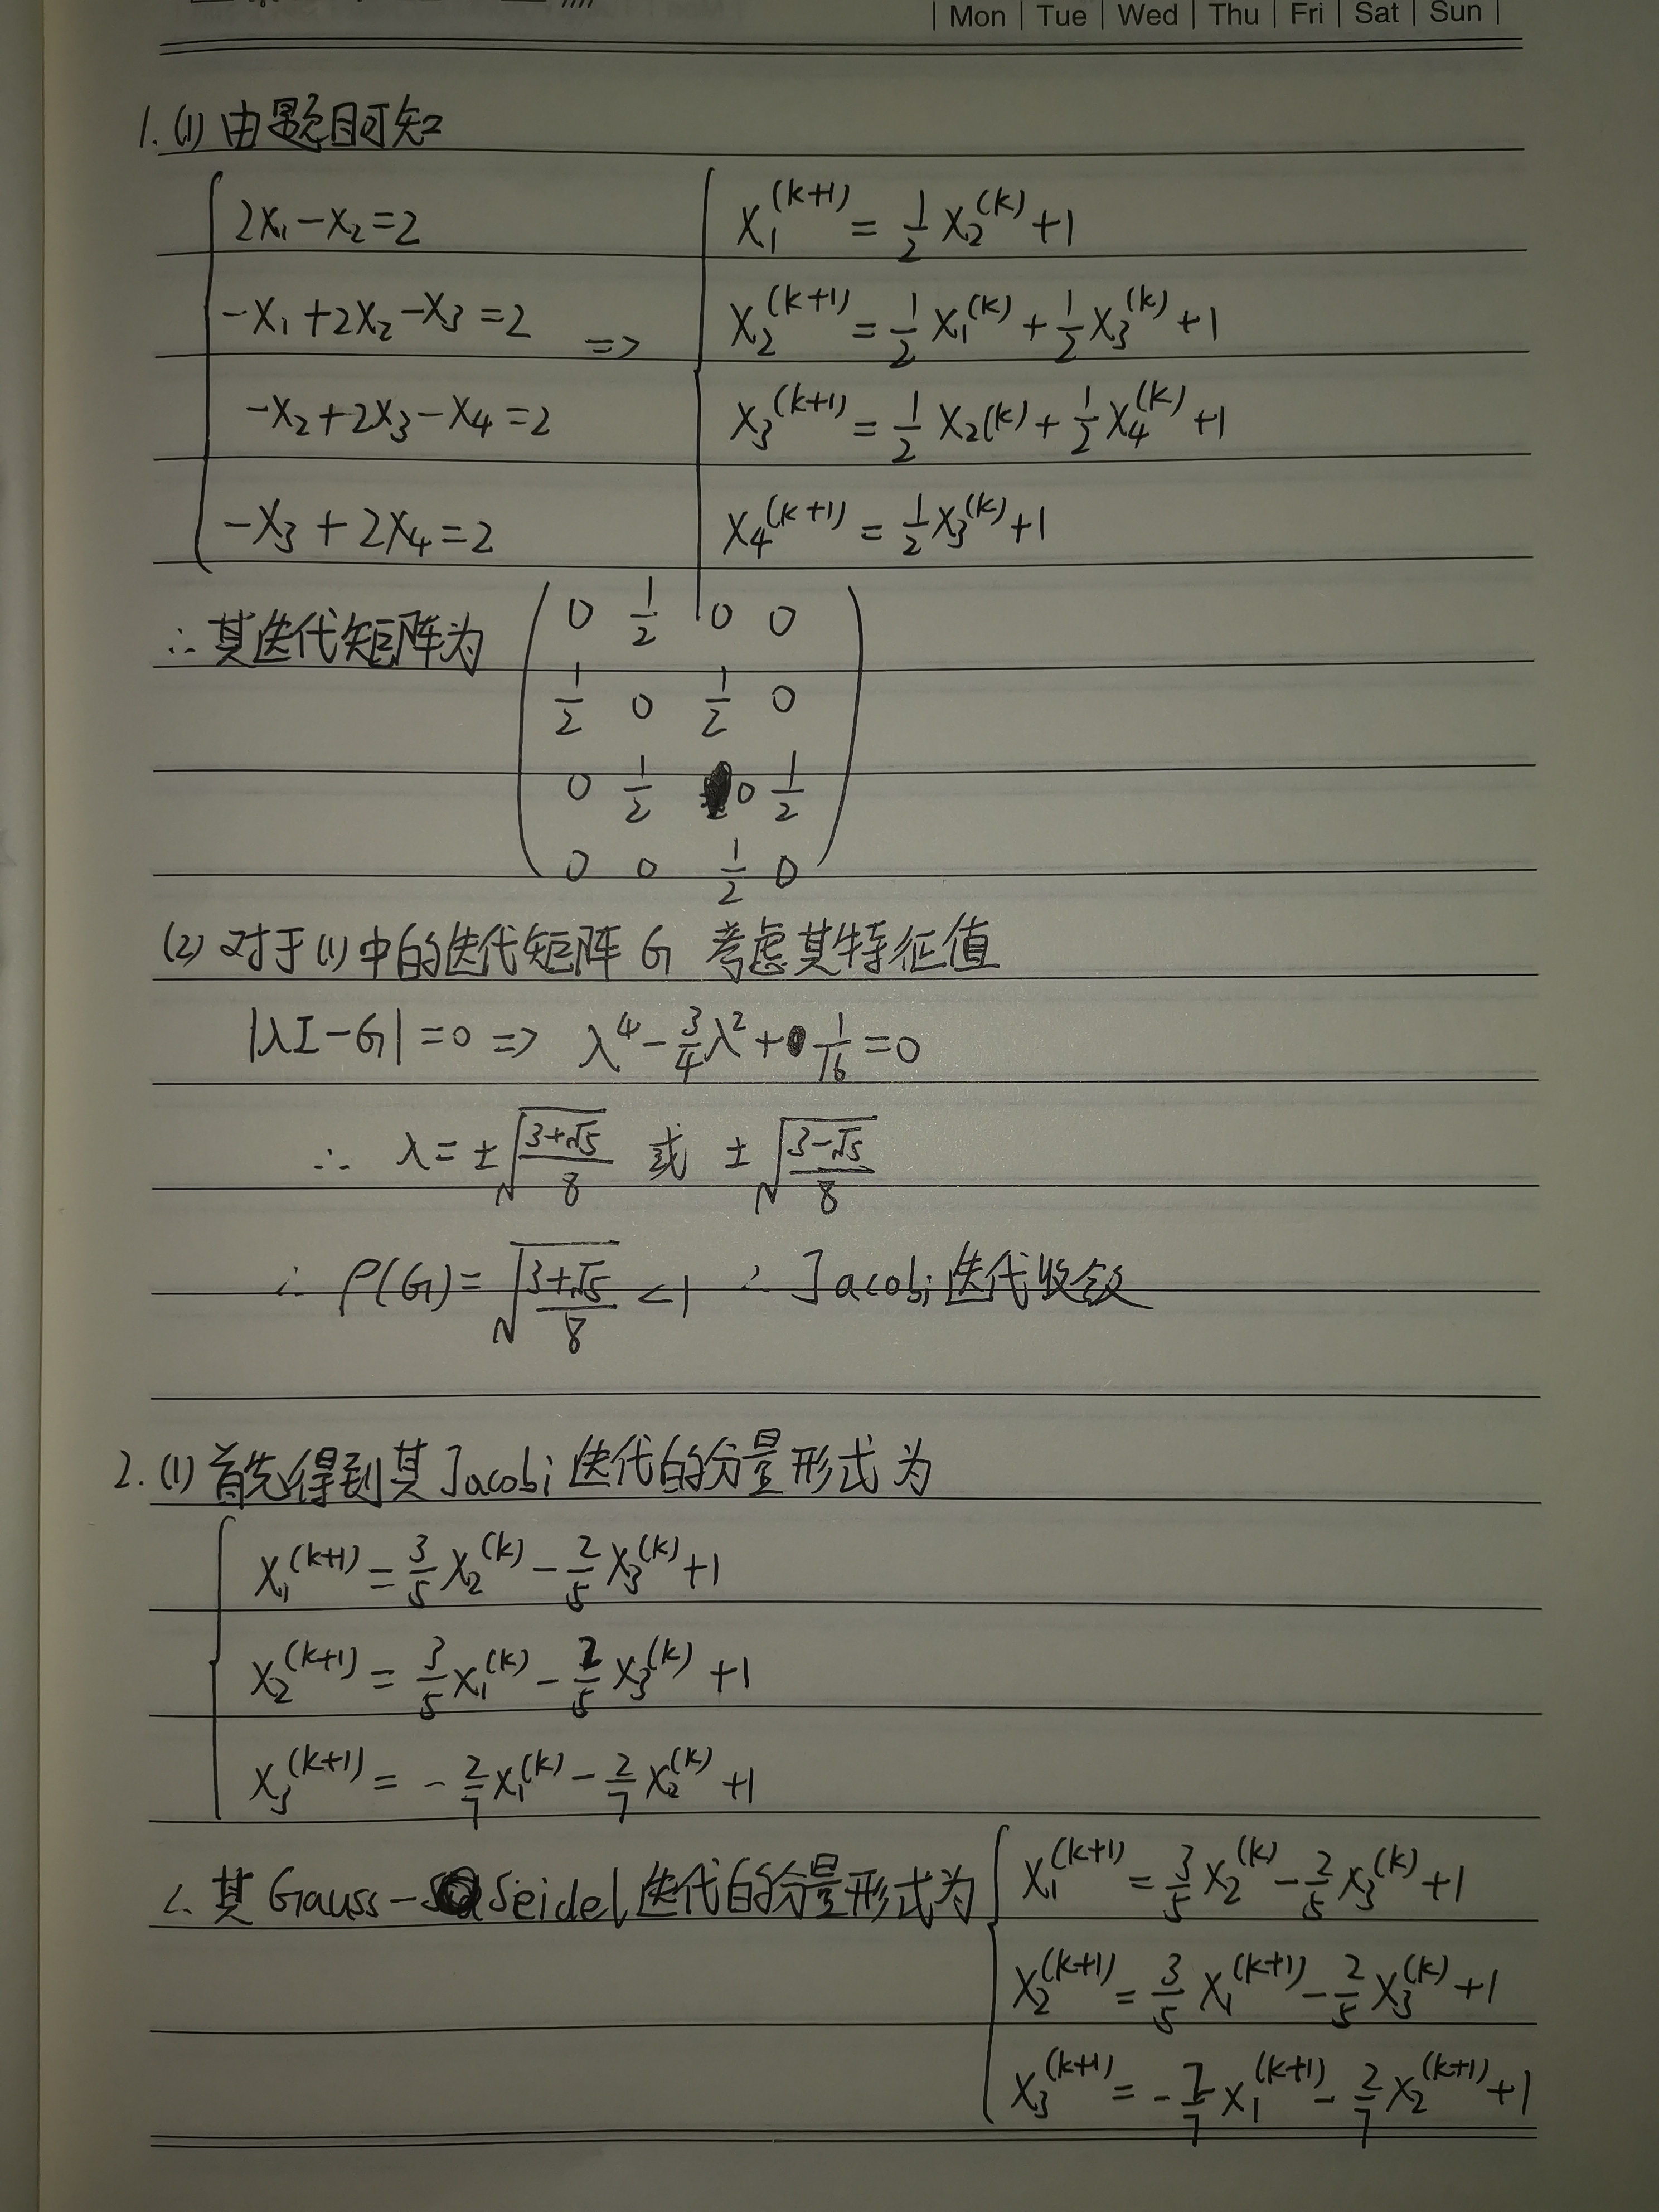 | Mon | Tue | Wed | Thu | Fri | Sat | Sun |
1. (1) 由题目可知
2x₁-x₂=2
-x₁+2x₂-x₃=2
-x₂+2x₃-x₄=2
-x₃+2x₄=2
=>
x₁^(k+1) = 1/2 x₂^(k) +1
x₂^(k+1) = 1/2 x₁^(k) + 1/2 x₃^(k) +1
x₃^(k+1) = 1/2 x₂(k) + 1/2 x₄^(k) +1
x₄^(k+1) = 1/2 x₃^(k) +1
∴ 其迭代矩阵为
0 1/2 0 0
1/2 0 1/2 0
0 1/2 0 1/2
0 0 1/2 0
(2) 对于(1)中的迭代矩阵 G 考虑其特征值
|λI-G|=0 => λ⁴ - 3/4 λ² + 1/16 = 0
∴ λ = ±√((3+√5)/8) 或 ±√((3-√5)/8)
∴ ρ(G) = √((3+√5)/8) <1 ∴ Jacobi迭代收敛
2. (1) 首先得到其Jacobi迭代的分量形式为
x₁^(k+1) = 3/5 x₂^(k) - 2/5 x₃^(k) +1
x₂^(k+1) = 3/5 x₁^(k) - 2/5 x₃^(k) +1
x₃^(k+1) = - 2/7 x₁^(k) - 2/7 x₂^(k) +1
∴ 其Gauss-Seidel迭代的分量形式为
x₁^(k+1) = 3/5 x₂^(k) - 2/5 x₃^(k) +1
x₂^(k+1) = 3/5 x₁^(k+1) - 2/5 x₃^(k) +1
x₃^(k+1) = - 2/7 x₁^(k+1) - 2/7 x₂^(k+1) +1